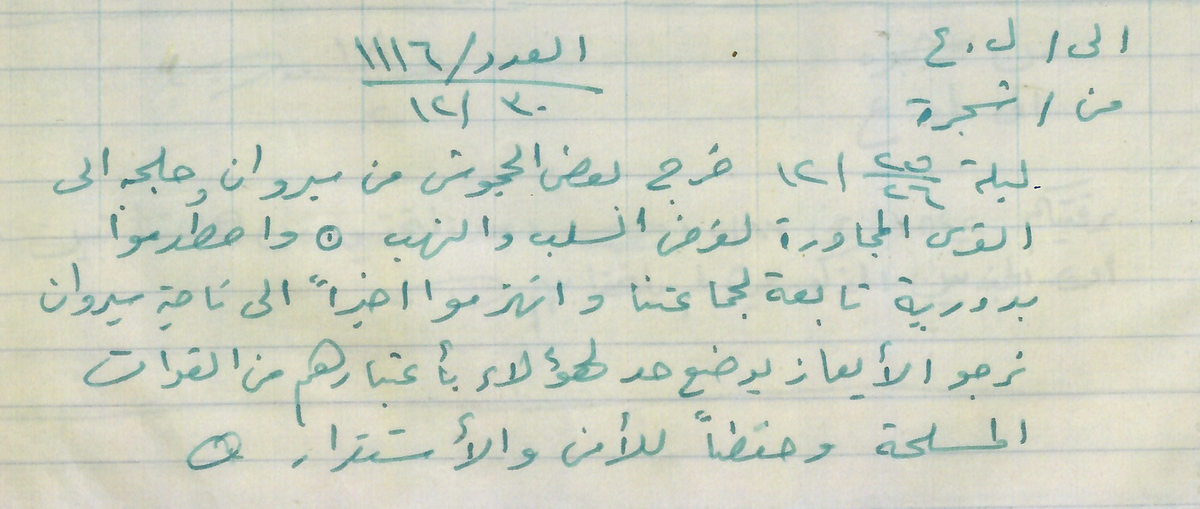 الى / ل . ع
العدد / ١١١٦
من / شجرة
٣٠ / ١٢
ليلة ٢٥/٢٦ / ١٢ خرج بعض الجحوش من سيروان وحلبجه الى
القرى المجاورة لغرض السلب والنهب ⊙ واصطدموا
بدورية تابعة لجماعتنا وانهزموا اخيراً الى ناحية سيروان
نرجو الأيعاز بوضع حد لهؤلاء بأعتبارهم من القوات
المسلحة وحفظاً للأمن والأستقرار ⊙